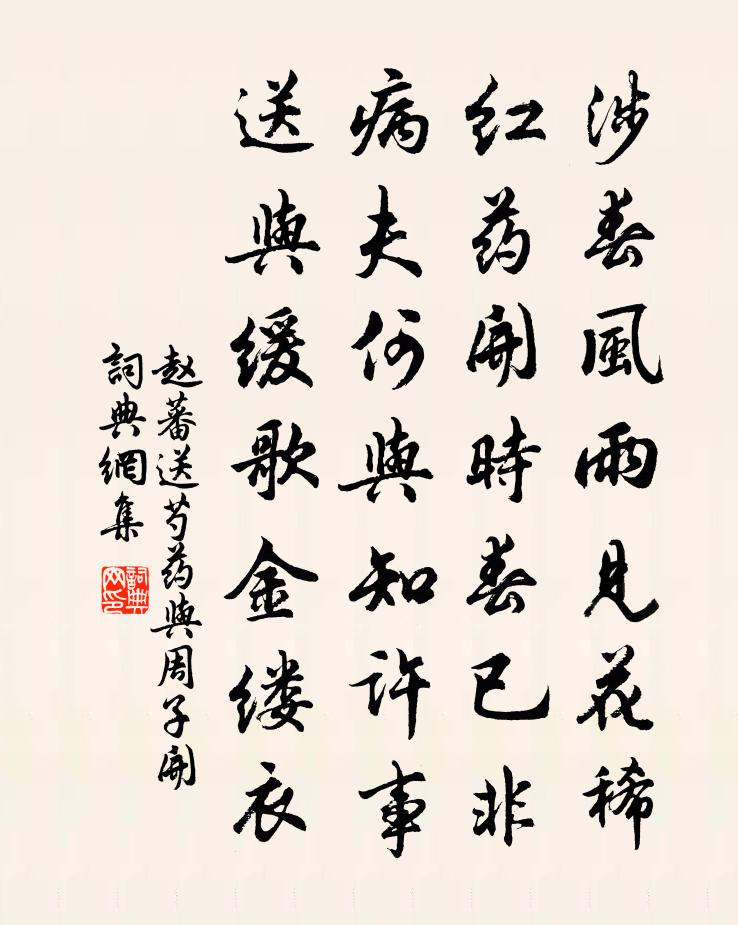 涉春風雨見花稀
紅药開時春已非
病夫何與知许事
送與缓歌金缕衣
赵蕃送芍药與周子開
詞典網集
詞典網印